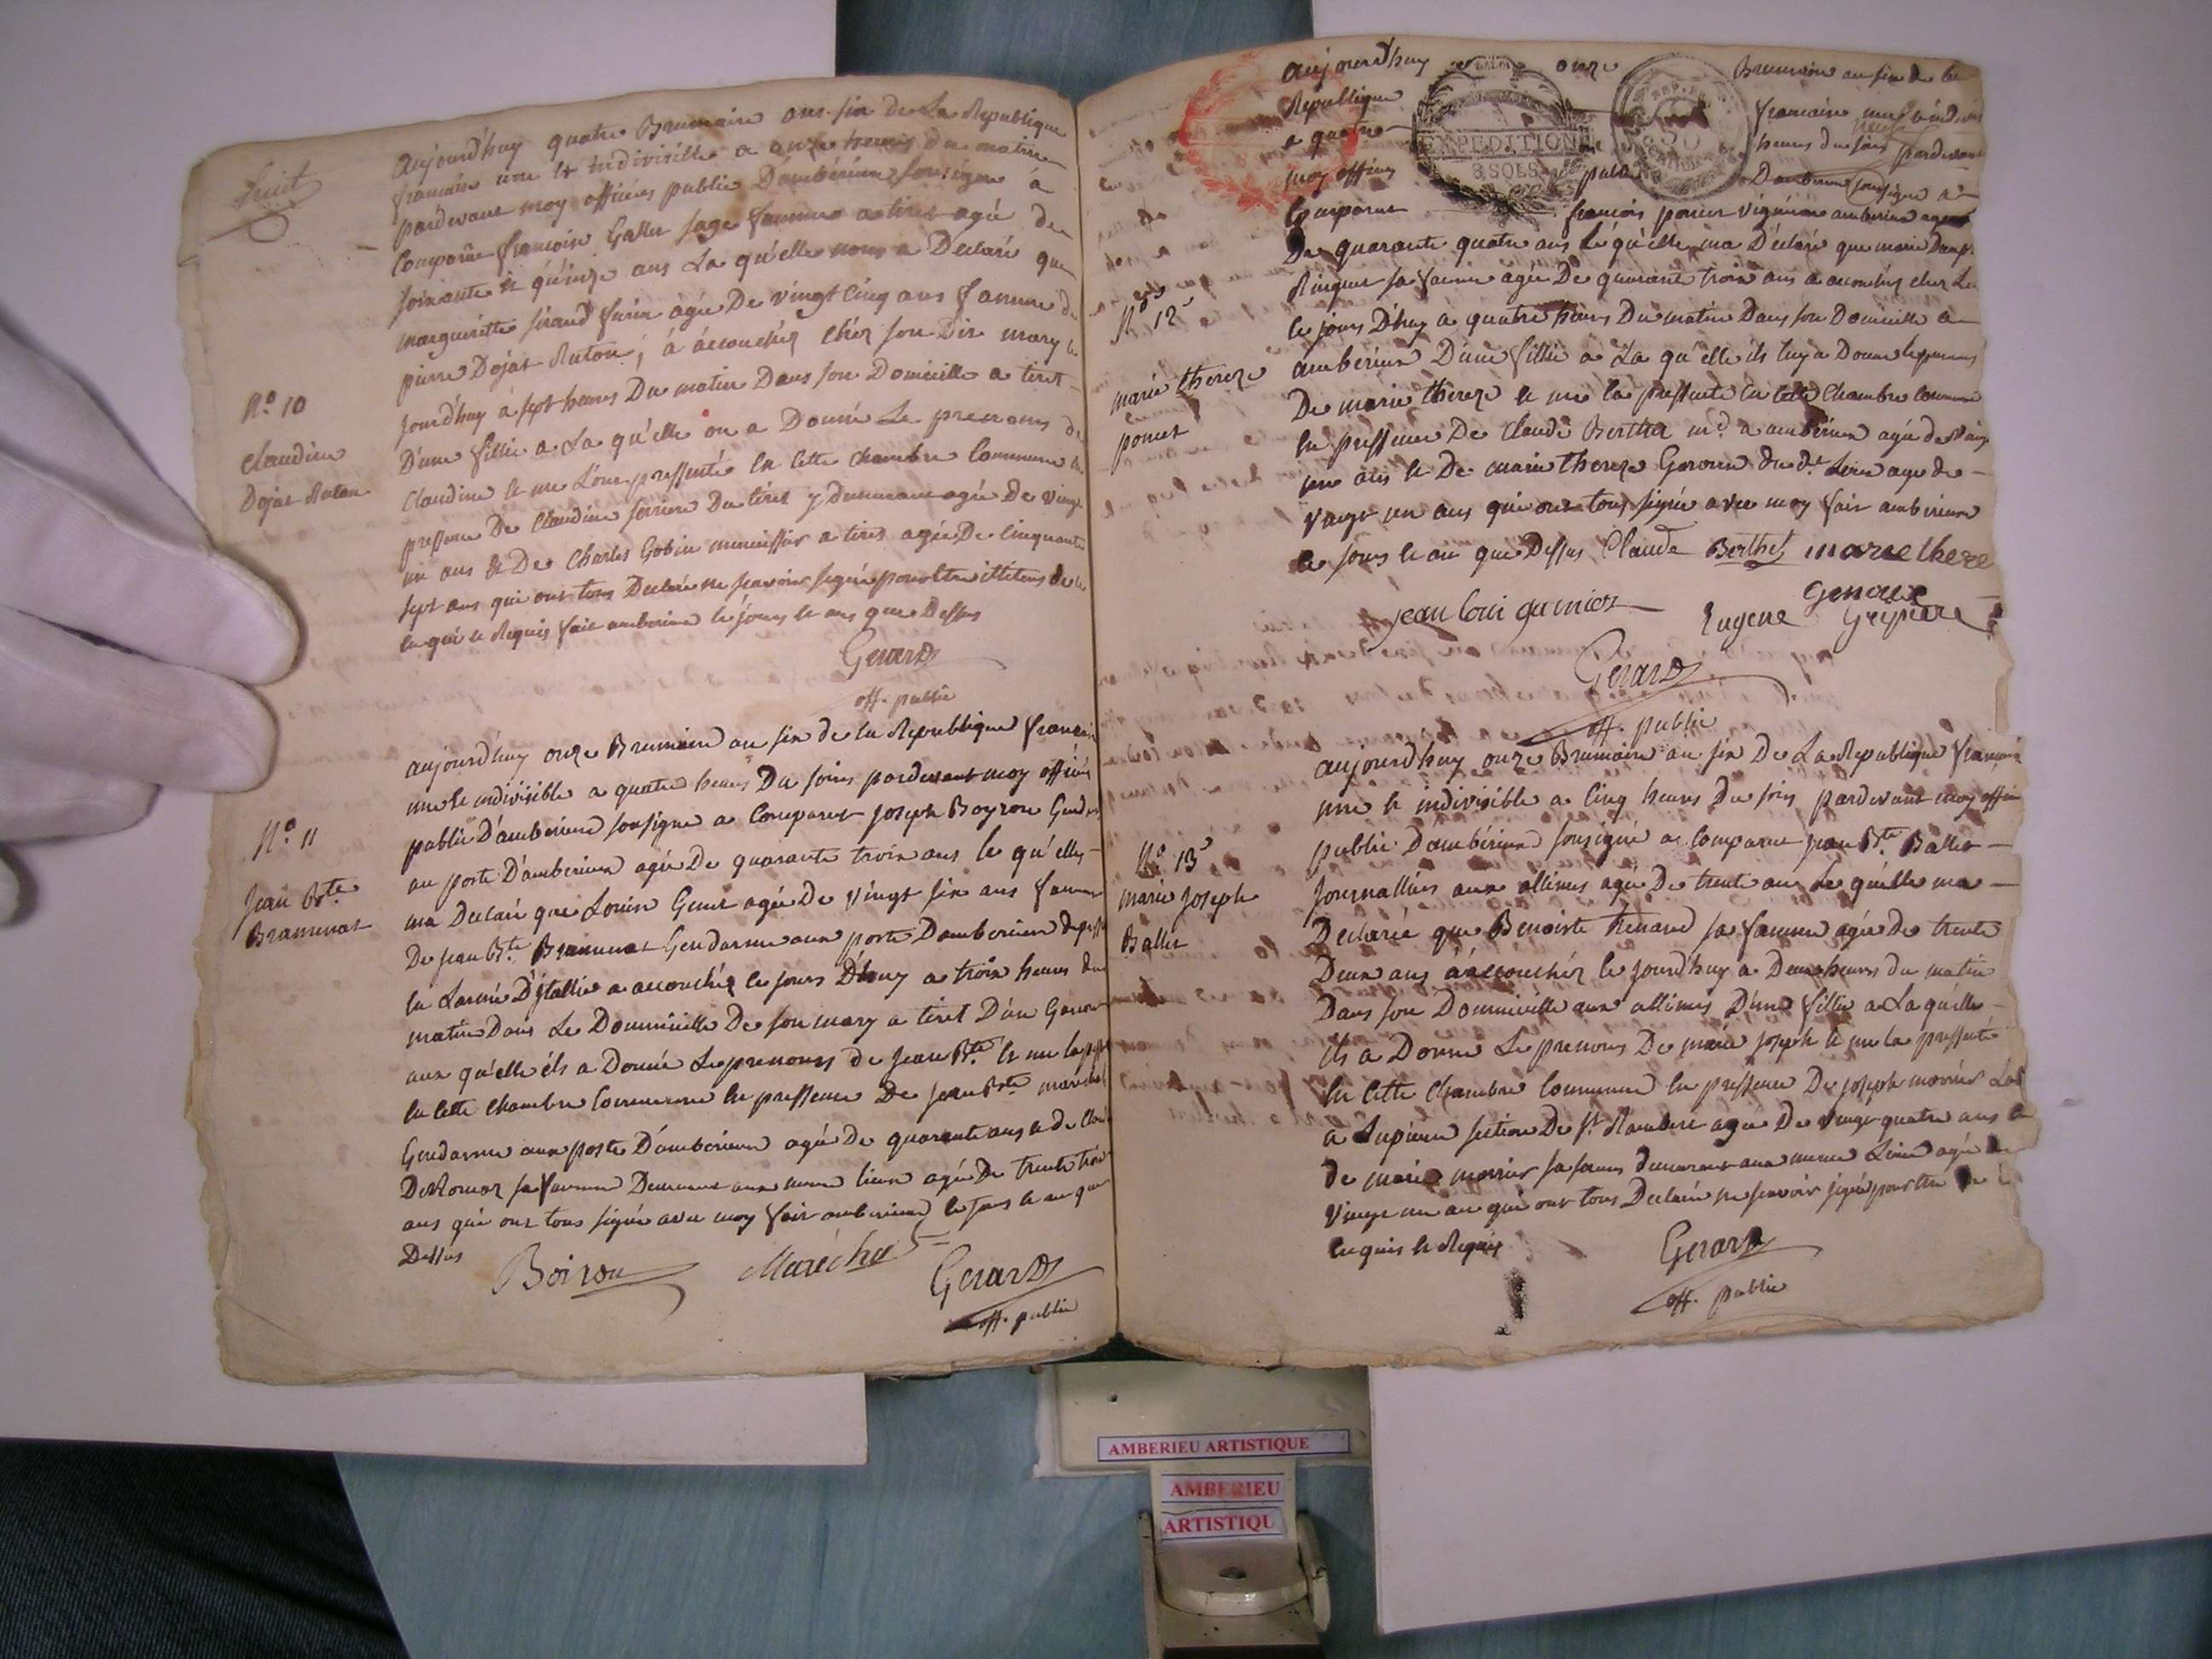 huit
Aujourd'huy quatre Brumaire ans six de La Republique
francaise une et indivisible a onze heures du matin
pardevant moy officier public D'ambérieux soussigné à
Comparue francoise Gallet sage famme a tiret agée de
soixante et quinze ans La qu'elle nous a Declaré que
marguéritte siraud agée De vingt cinq ans famme de
pierre Dojat Ruton, à accouchéz chéz son Dit mary ce
jourd'huy à sept heures Du matin Dans son Domicille a tiret
N.º 10
Claudine
Dojat Ruton
D'une fillie a La qu'elle on a Donné Le prenoms de
Claudine et me L'ont pressenté en cette chambre Commune en
pressence De Claudine Du tiret y Demeurant agée De vingt
un ans et De Charles Gobin a tiret agée De cinquante
sept ans qui ont tous Declaré ne scavoir signé pour être illiteré de ce
en quis et Requis fait amberieu le jours et ans que Dessus
Gerard
off. public
N.º 11
Jean Bte
Bramerat
aujourd'huy onze Brumaire an six de la Republique francaise
une et indivisible a quatre heures Du soirs pardevant moy officier
public D'amberieux soussigné a Comparut Joseph Boyron Gendarme
au poste D'amberieux agée De quarante trois ans le qu'elle
ma Declaré que Louise Genet agée De vingt six ans famme
De jean Bte Gendarme aux poste Damberieux
en Larmée D'jtallie a accouchéz ce jours D'huy a trois heures du
matin Dans Le Dommicille De son mary a tiret D'un Garcon
aux qu'elle ils a Donné Le prenoms de jean Bte et me la
en cette chambre Commune en pressence De jean Bte marechal
Gendarme aux poste D'amberieux agée De quarante ans et de
sa famme Demeurant aux meme lieux agée De trente trois
ans qui ont tous signée avec moy fait amberieux le jours et an que
Dessus
Boiron Maréchal Gerard
off. public
Aujourd'huy onze Brumaire an six de la
Republique francaise une indivisible
a quatre heures du soirs pardevant
EXPEDITION
8 SOLS
moy officier public Damberieux soussigné a
Comparut francois poncet vigneron amberieux agée
De quarante quatre ans Le qu'elle ma Déclaré que marie
sa famme agée De quarante trois ans a accouchez chez Lui
N.º 12
marie thereze
poncet
ce jours D'huy à quatre heures Du matin Dans son Domicille a
amberieux D'une fillie a La qu'elle ils luy a Donné le prenoms
De marie thereze et me la pressenté en cette Chambre Commune
en pressence De Claude Berthet md. a amberieux agée de vingt
une ans et De marie thereze Genoux du dt. Lieux age de
vingt un ans qui ont tous signée avec moy fait amberieux
ce jours et an que Dessus Claude Berthet marie theres
Genoux
jean loui garnier Eugene
Gerard
off. public
aujourd'huy onze Brumaire an six De La Republique francaise
une et indivisible a cinq heures Du soirs pardevant moy officier
public D'ambérieux soussigné a Comparut jean Bte. Ballet
N.º 13
marie Joseph
Ballet
journallier aux allimes agée De trente ans Le qu'elle ma
Declarée que Benoiste Renaud sa famme agée de trente
Deux ans à accouchéz ce jourd'huy a Deux heures du matin
Dans son Dommicille aux allimes D'une fillie a La qu'elle
ils a Donné Le prenoms De marie joseph et me la pressenté
en cette chambre Commune en pressence De joseph
a Lupieux section De St. Rambert agée De vingt quatre ans et
de marie sa demeurant aux meme Lieux agée de
vingt un an qui ont tous Declaré ne scavoir signé pour être
en quis et Requis
Gerard
off. public
AMBERIEU ARTISTIQUE
AMBERIEU
ARTISTIQU